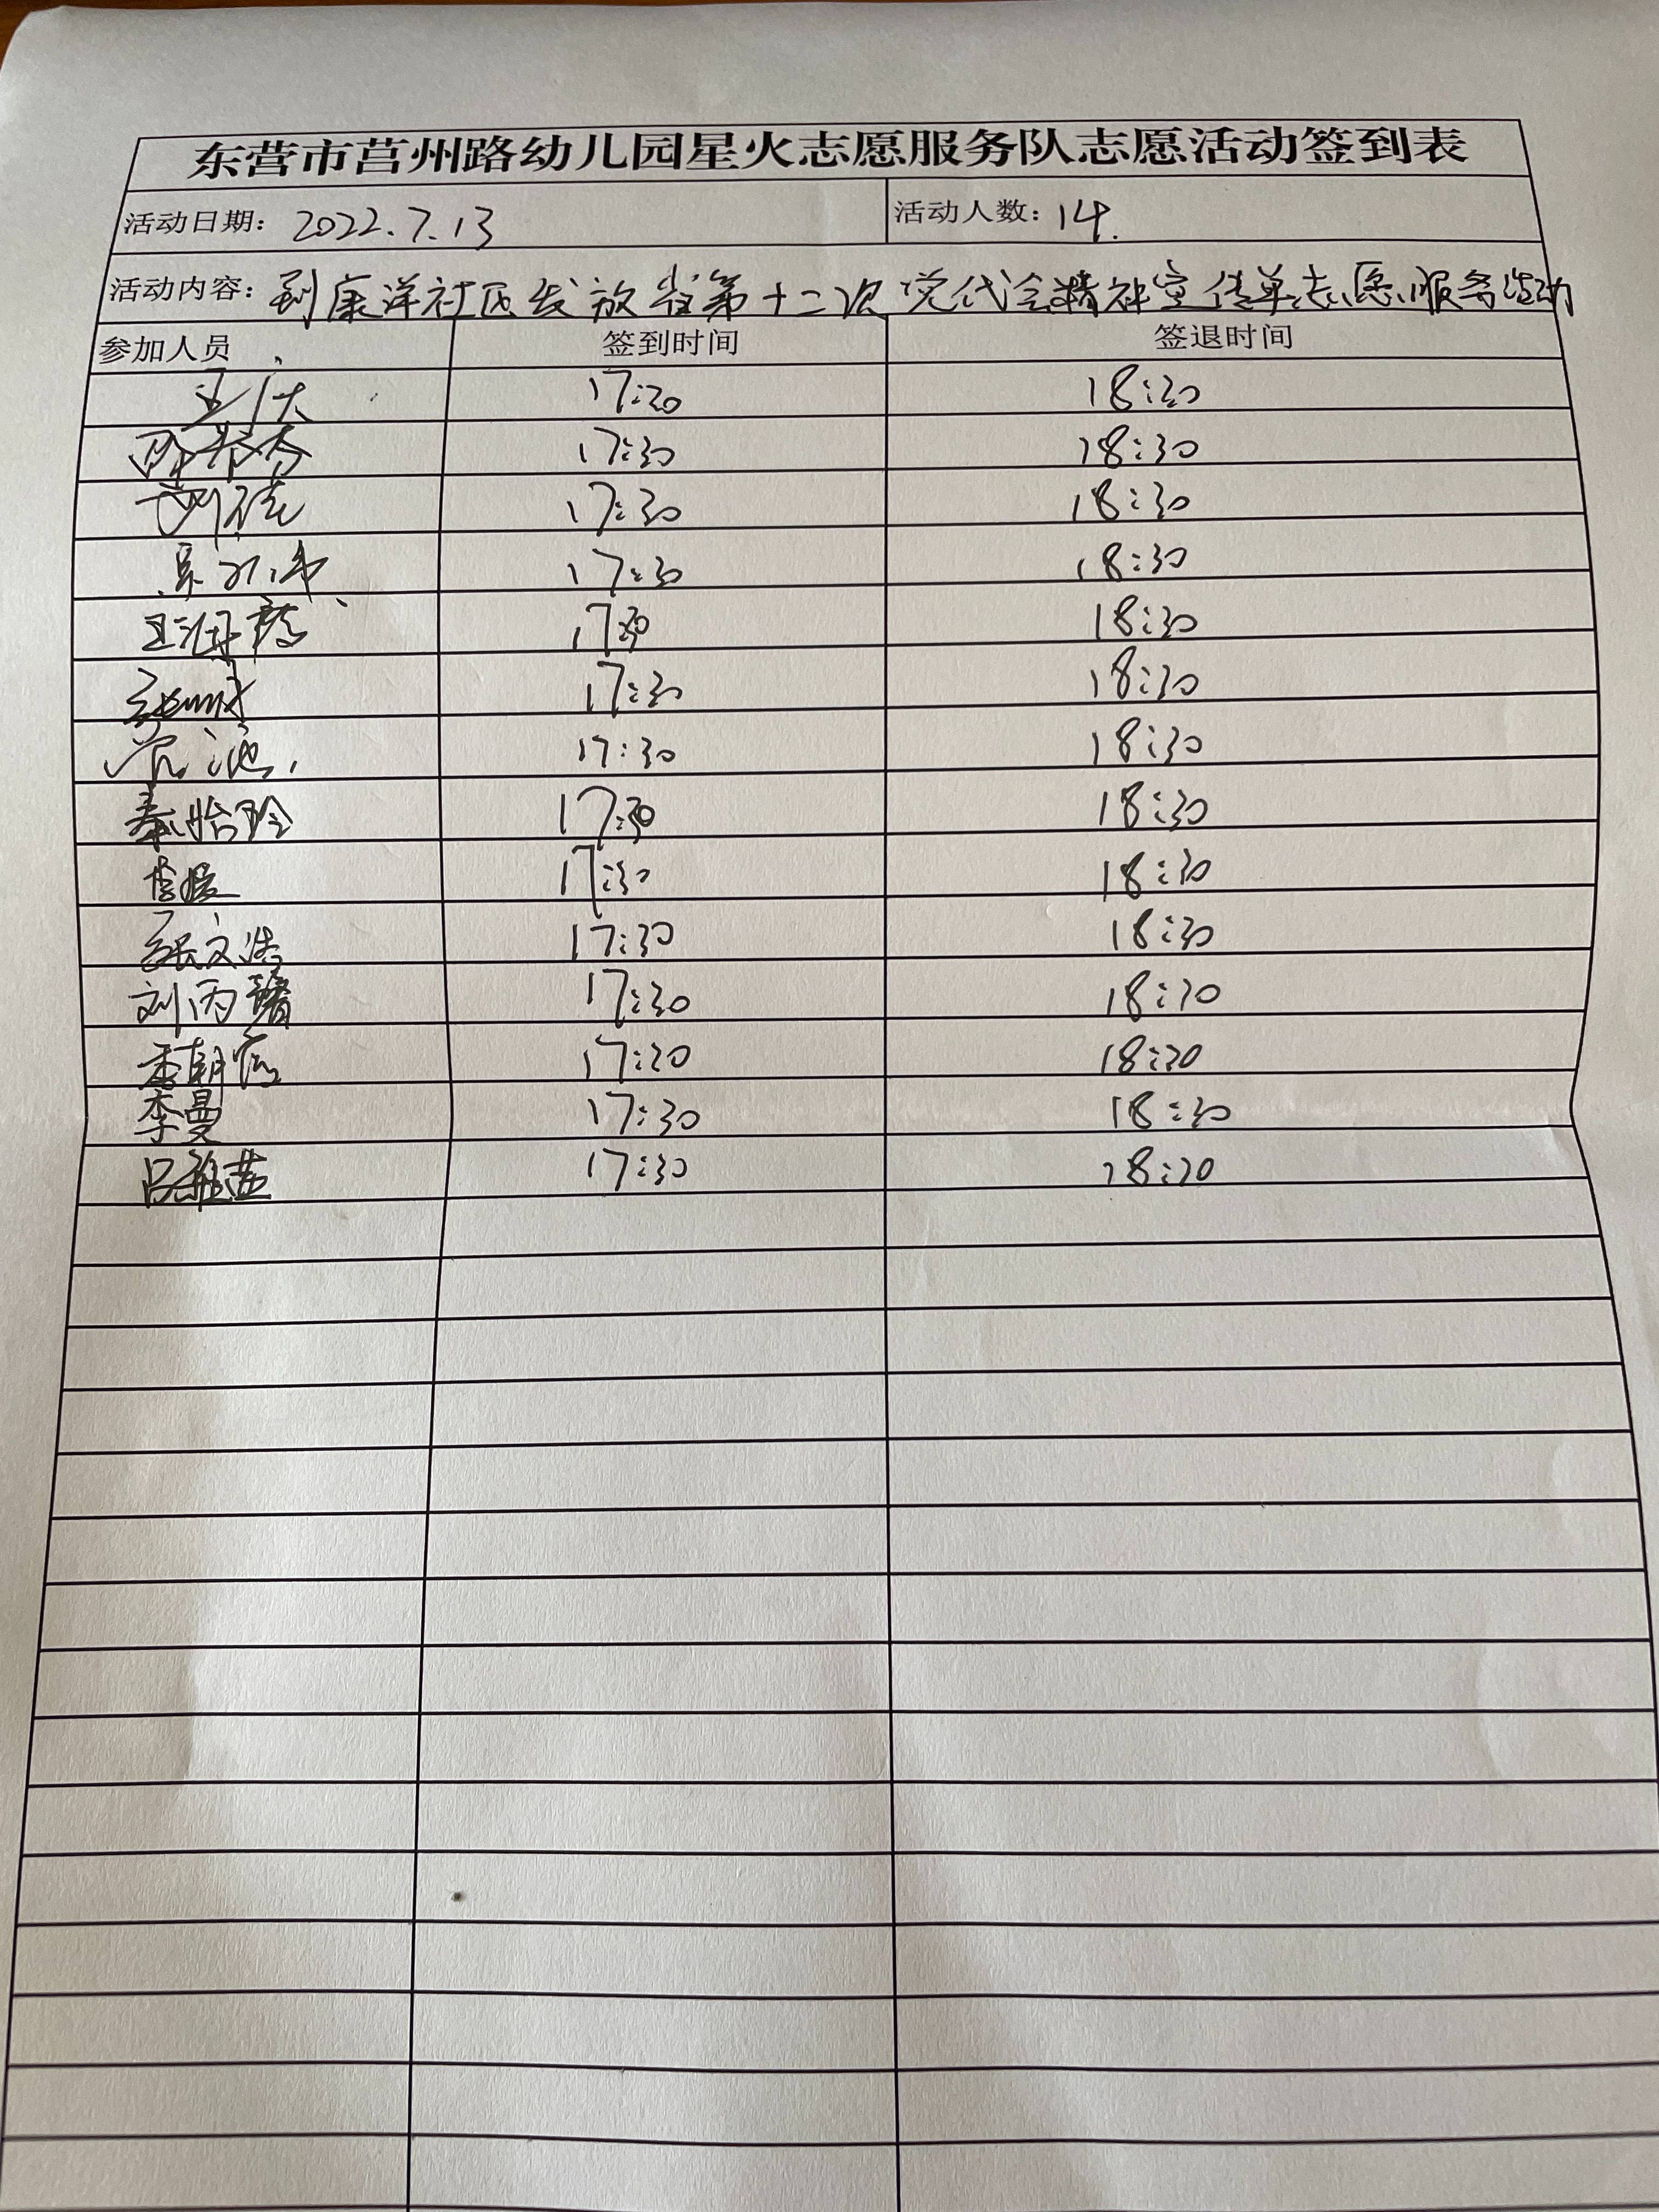 东营市莒州路幼儿园星火志愿服务队志愿活动签到表
活动日期: 2022.7.13 活动人数: 14.
活动内容: 到康洋社区发放省第十二次党代会精神宣传单志愿服务活动
参加人员 签到时间 签退时间
17:30 18:30
17:30 18:30
刘佳 17:30 18:30
17:30 18:30
王海霞 17:30 18:30
17:30 18:30
17:30 18:30
秦怡玲 17:30 18:30
17:30 18:30
张文浩 17:30 18:30
刘丙 17:30 18:30
李朝霞 17:30 18:30
李曼 17:30 18:30
吕雅茜 17:30 18:30